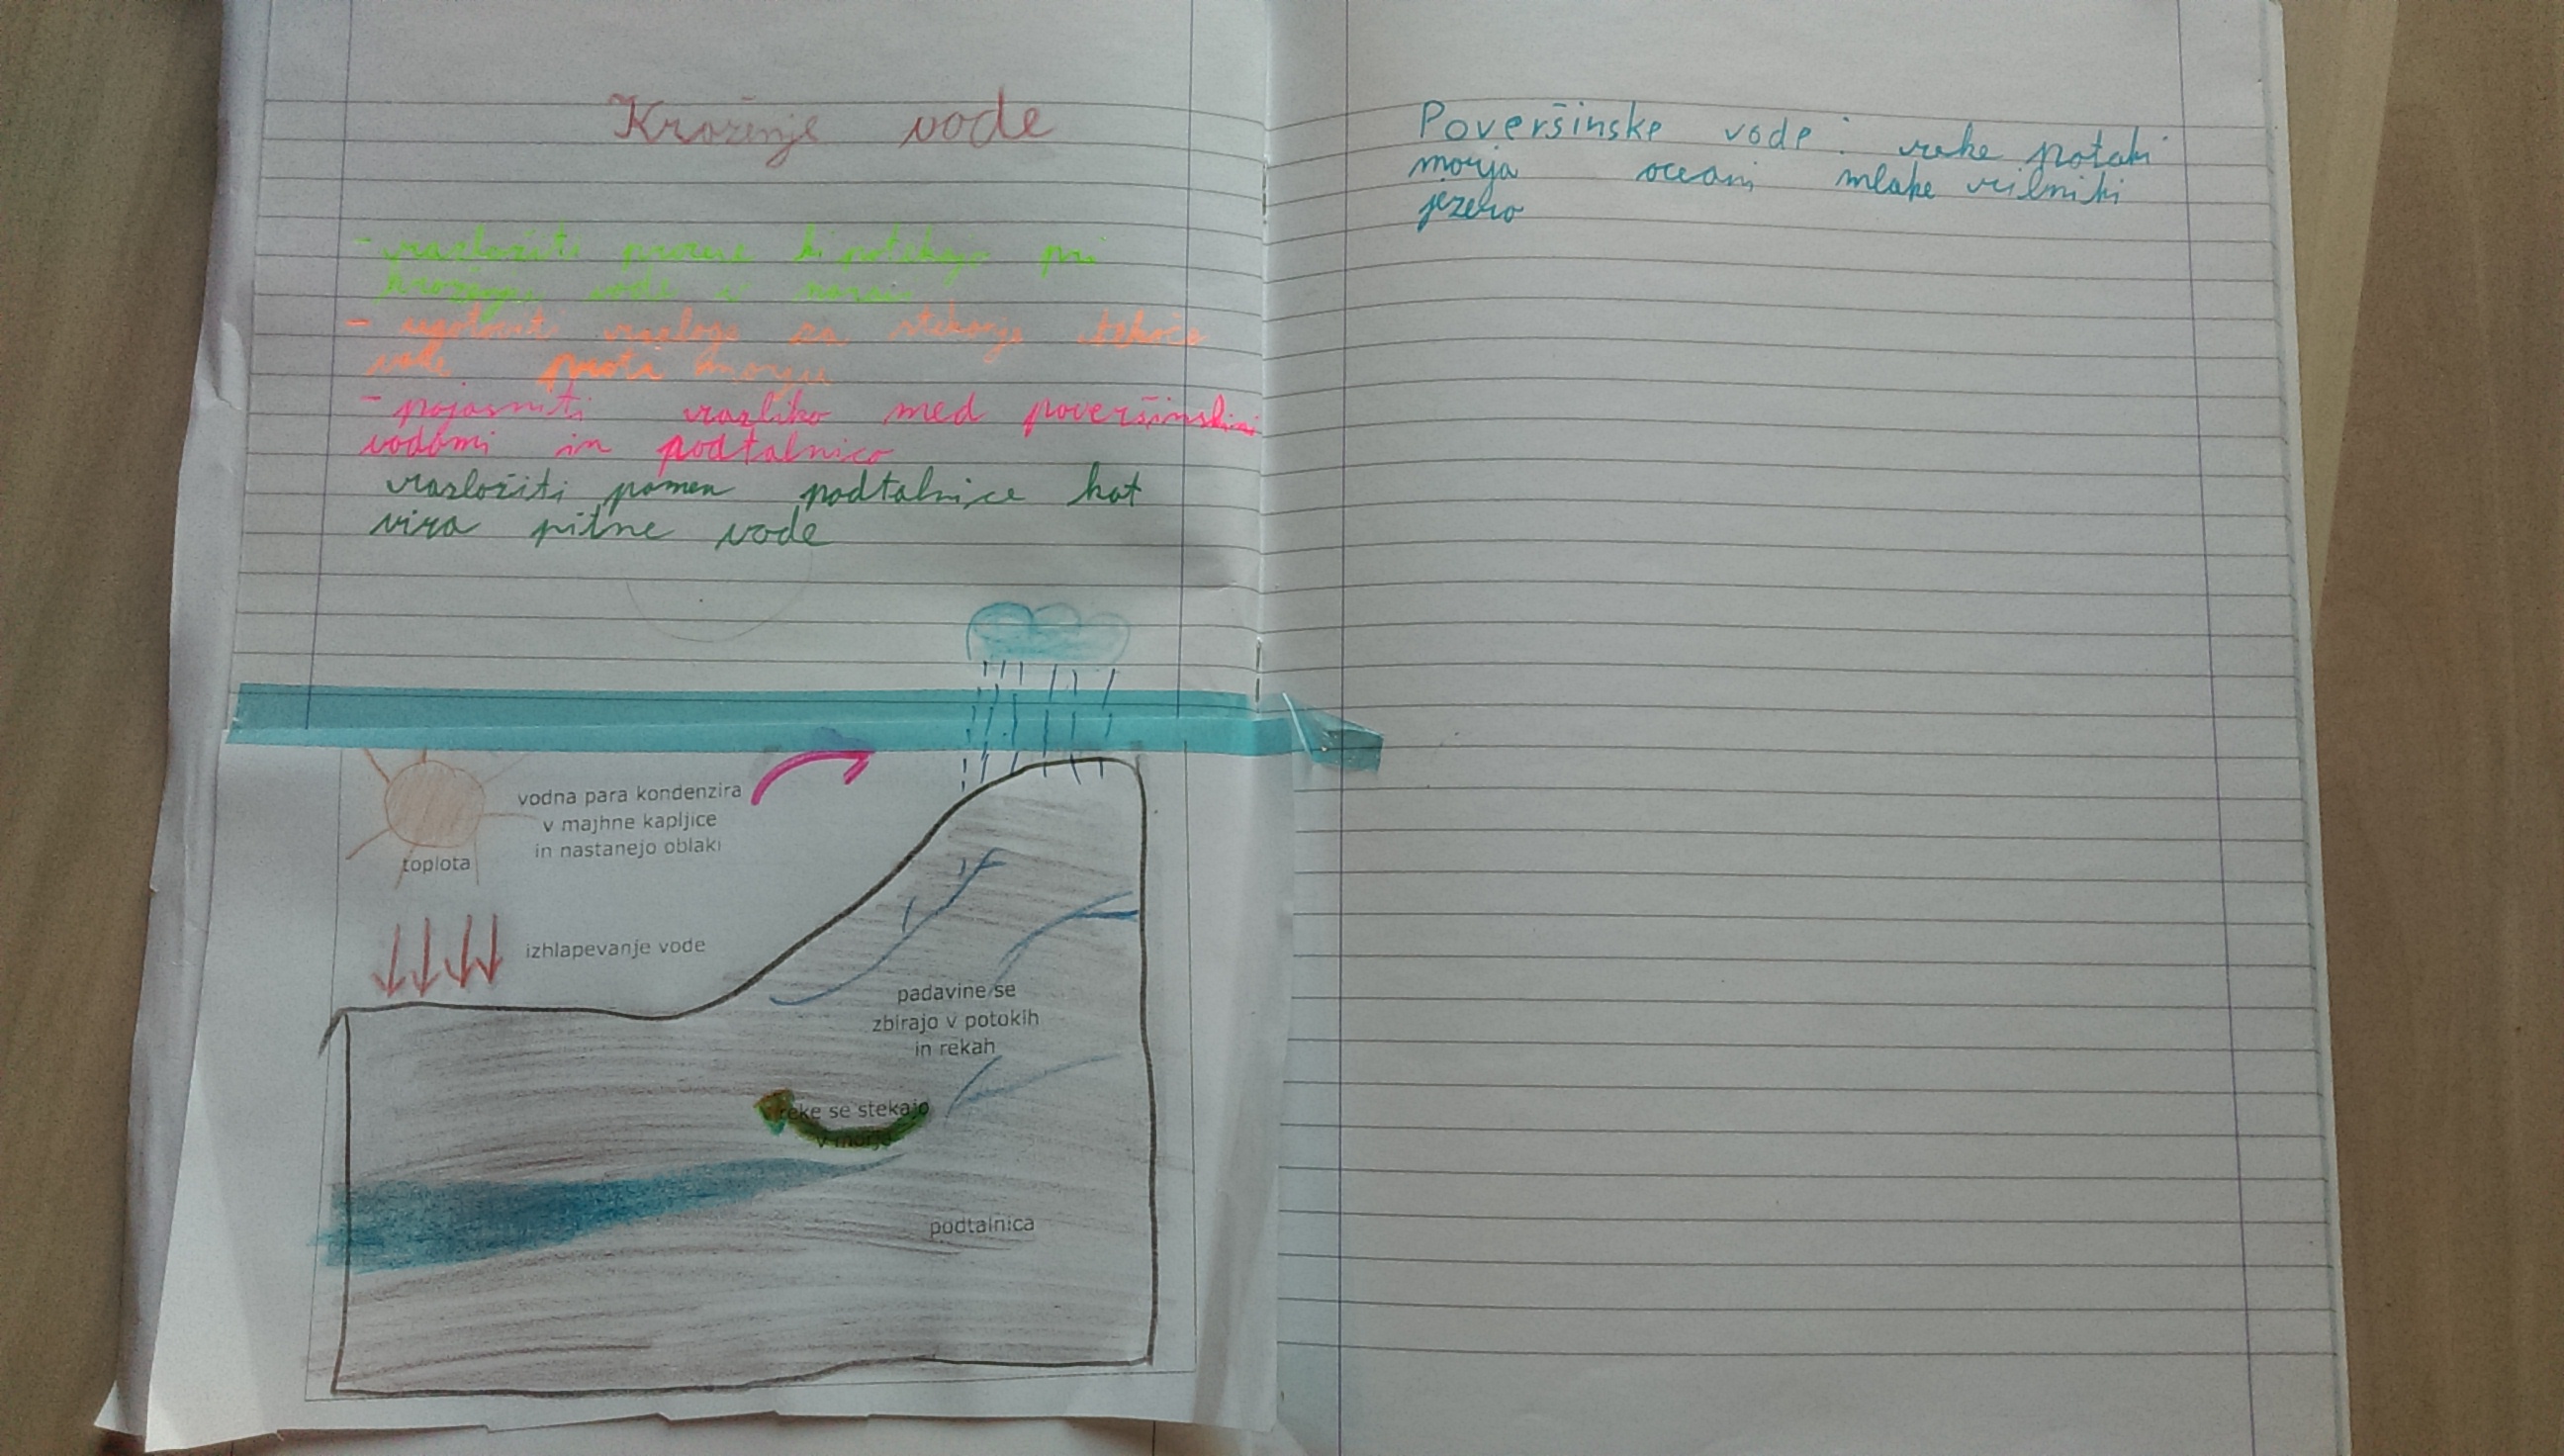 Kroženje vode
- razložiti procese ki potekajo pri
kroženju vode v naravi
- ugotoviti razloge za stekanje tekoče
vode proti morju
- pojasniti razliko med poveršinskimi
vodami in podtalnico
razložiti pomen podtalnice kot
vira pitne vode
vodna para kondenzira
v majhne kapljice
in nastanejo oblaki
toplota
izhlapevanje vode
padavine se
zbirajo v potokih
in rekah
reke se stekajo
v morje
podtalnica
Poveršinske vode: reke potoki
morja oceani mlake ribniki
jezero